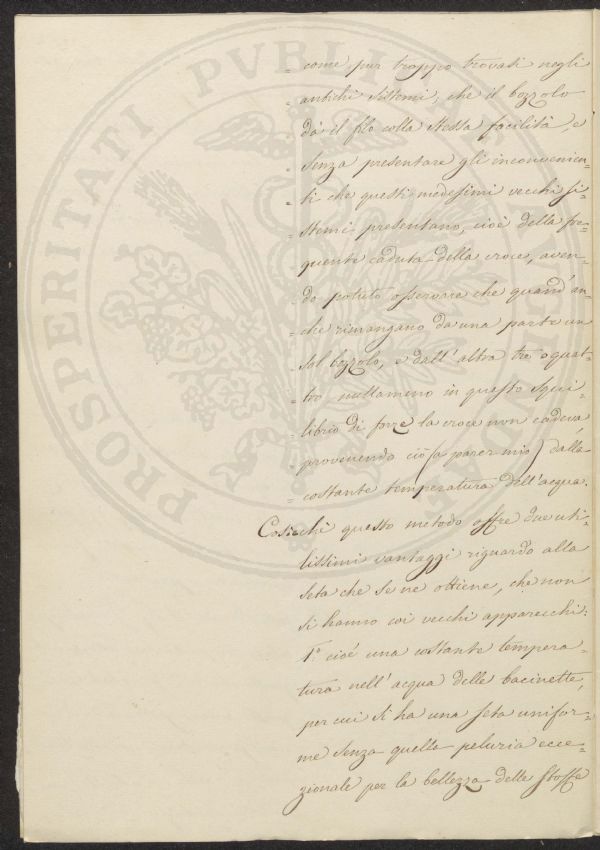 PROSPERITATI PVBLI
= come pur troppo trovasi negli
= antichi sistemi, che il bozzolo
= dà il filo colla stessa facilità, e
= senza presentare gli inconvenien=
= ti che questi medesimi vecchi si=
= stemi presentano, cioè della fre=
= quente caduta della croce, aven=
= do potuto osservare che quand'an=
= che rimangano da una parte un
= sol bozzolo, e dall'altra tre o quat=
= tro, nullameno in questo squi=
= librio di forze la croce non cadeva,
= provenendo ciò (a parer mio) dalla
= costante temperatura dell'acqua.
Cosicchi questo metodo offre due uti=
lissimi vantaggi riguardo alla
seta che se ne ottiene, che non
si hanno coi vecchi apparecchi:
1.° cioè una costante tempera=
tura nell'acqua delle bacinette,
per cui si ha una seta unifor=
me senza quella peluria ecce=
zionale per la bellezza delle stoffe